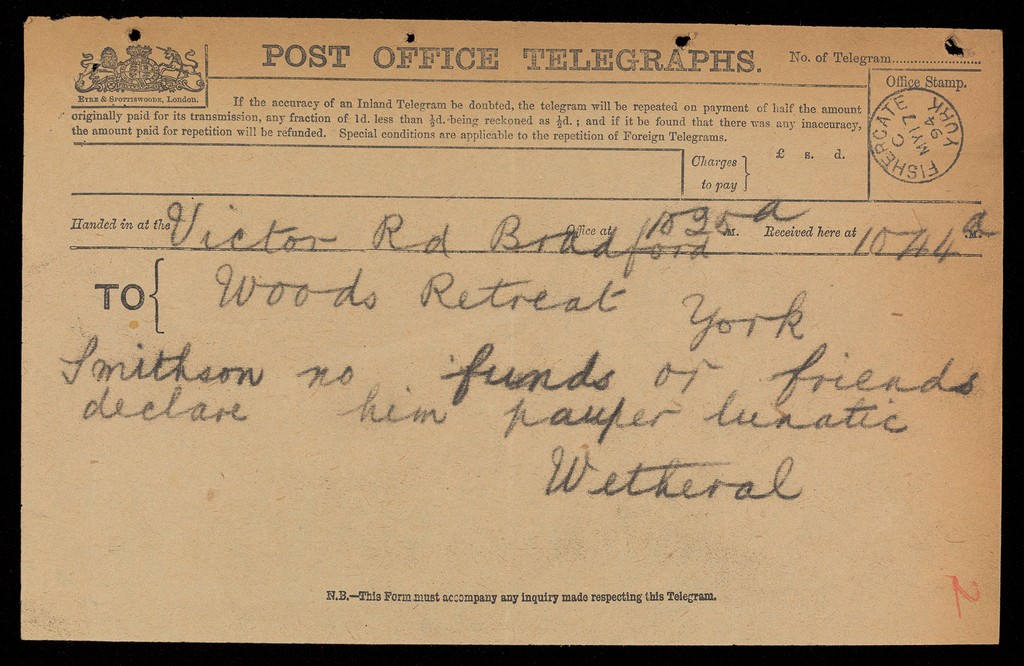 POST OFFICE TELEGRAPHS.
No. of Telegram
Office Stamp.
EYRE & SPOTTISWOODE, LONDON.
If the accuracy of an Inland Telegram be doubted, the telegram will be repeated on payment of half the amount
originally paid for its transmission, any fraction of 1d. less than ½d. being reckoned as ½d.; and if it be found that there was any inaccuracy,
the amount paid for repetition will be refunded. Special conditions are applicable to the repetition of Foreign Telegrams.
FISHERGATE YORK
C
MY 17
94
Charges
to pay
£ s. d.
Handed in at the Victor Rd Bradford Office at 10 25 a M. Received here at 10 44 a M.
TO { Woods Retreat York
Smithson no funds or friends
declare him pauper lunatic
Wetheral
N.B.—This Form must accompany any inquiry made respecting this Telegram.